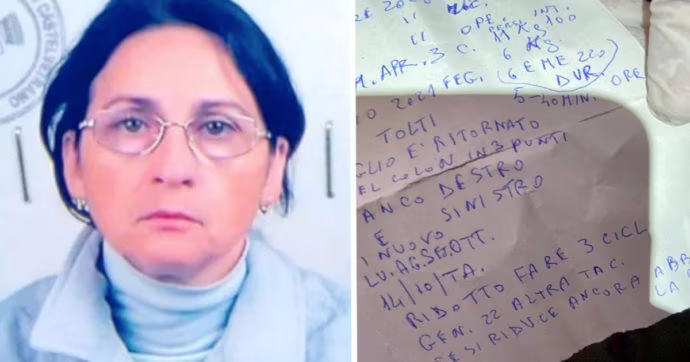 CASTELVETRANO
OPE. INT.
APR. 3 C. 11 X 5100
6 X 5
2021 FEG. (6 E ME 220)
DUR. OPE
5-40 MIN.
TOLTI
GLIO E' RITORNATO
EL COLON IN 3 PUNTI
ANCO DESTRO
E SINISTRO
NUOVO
LU. AG. SE. OTT.
14/10/TA.
RIDOTTO FARE 3 CICL
GEN. 22 ALTRA TAC.
SE SI RIDUCE ANCORA
ABB
LA